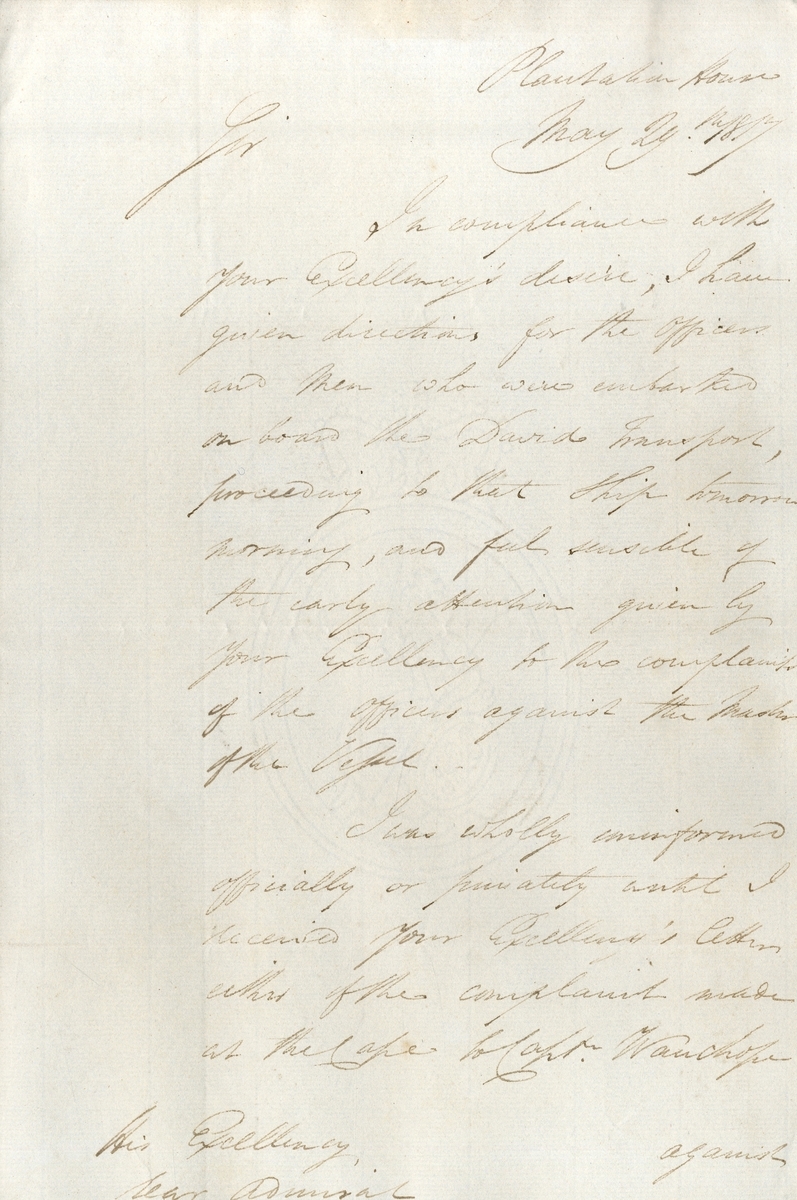 Plantation House
May 29th 1817
Sir
In compliance with
your Excellency's desire, I have
given directions for the Officers
and Men who were embarked
on board the David Transport,
proceeding to that Ship tomorrow
morning, and feel sensible of
the early attention given by
your Excellency to the complaints
of the Officers against the Master
of the Vessel.
I was wholly uninformed
officially or privately until I
received your Excellency's letter
either of the complaint made
at the Cape to Captn. Wauchope
His Excellency
against
Rear Admiral